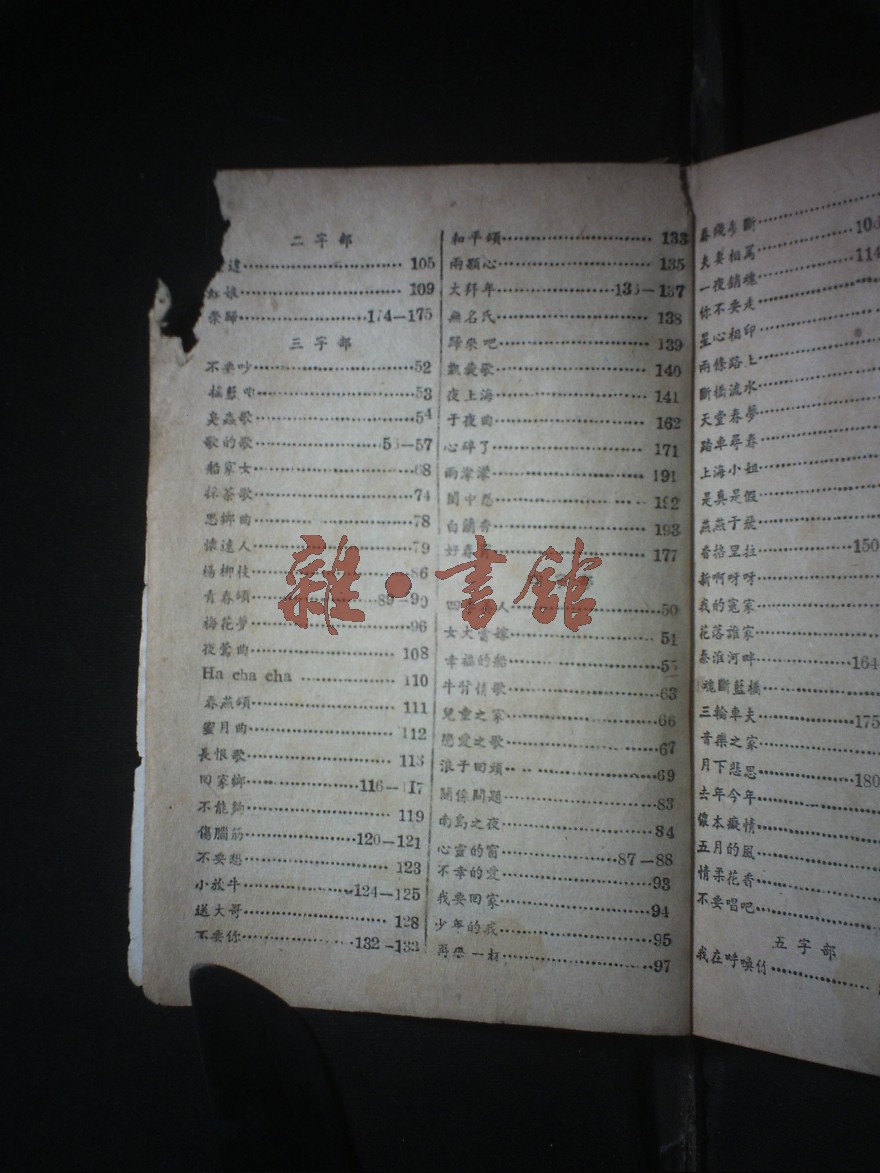 二字部
105
紅娘 109
榮歸 174—175
三字部
不要吵 52
53
臭蟲歌 54
歌的歌 57
船家女 68
採茶歌 74
思鄉曲 78
懷遠人 79
楊柳枝 86
青春頌 89—90
梅花夢 96
夜鶯曲 108
Ha cha cha 110
春燕頌 111
蜜月曲 112
長恨歌 113
回家鄉 116—117
不能夠 119
傷腦筋 120—121
不要愁 123
小放牛 124—125
送大哥 128
不要你 132—133
和平頌 133
兩顆心 135
大拜年 136—137
無名氏 138
歸來吧 139
凱旋歌 140
夜上海 141
子夜曲 162
心碎了 171
雨濛濛 191
閨中怨 192
白蘭香 193
177
四 人 50
女大當嫁 51
幸福的船
牛背情歌 63
兒童之家 66
戀愛之歌 67
浪子回頭 69
關係問題 83
南島之夜 84
心靈的窗 87—88
不幸的愛 93
我要回家 94
少年的我 95
再來一杯 97
春殘夢斷
夫妻相罵 10
一夜銷魂 114
你不要走
星心相印
兩條路上
斷橋流水
天堂春夢
踏車尋春
上海小姐
是真是假
燕燕于飛
香格里拉 150
新啊呀呀
我的冤家
花落誰家
秦淮河畔 164
魂斷藍橋
三輪車夫 175
音樂之家
月下悲思 180
去年今年
儂本癡情
五月的風
情柔花香
不要唱吧
五字部
我在呼喚你
雜·書館